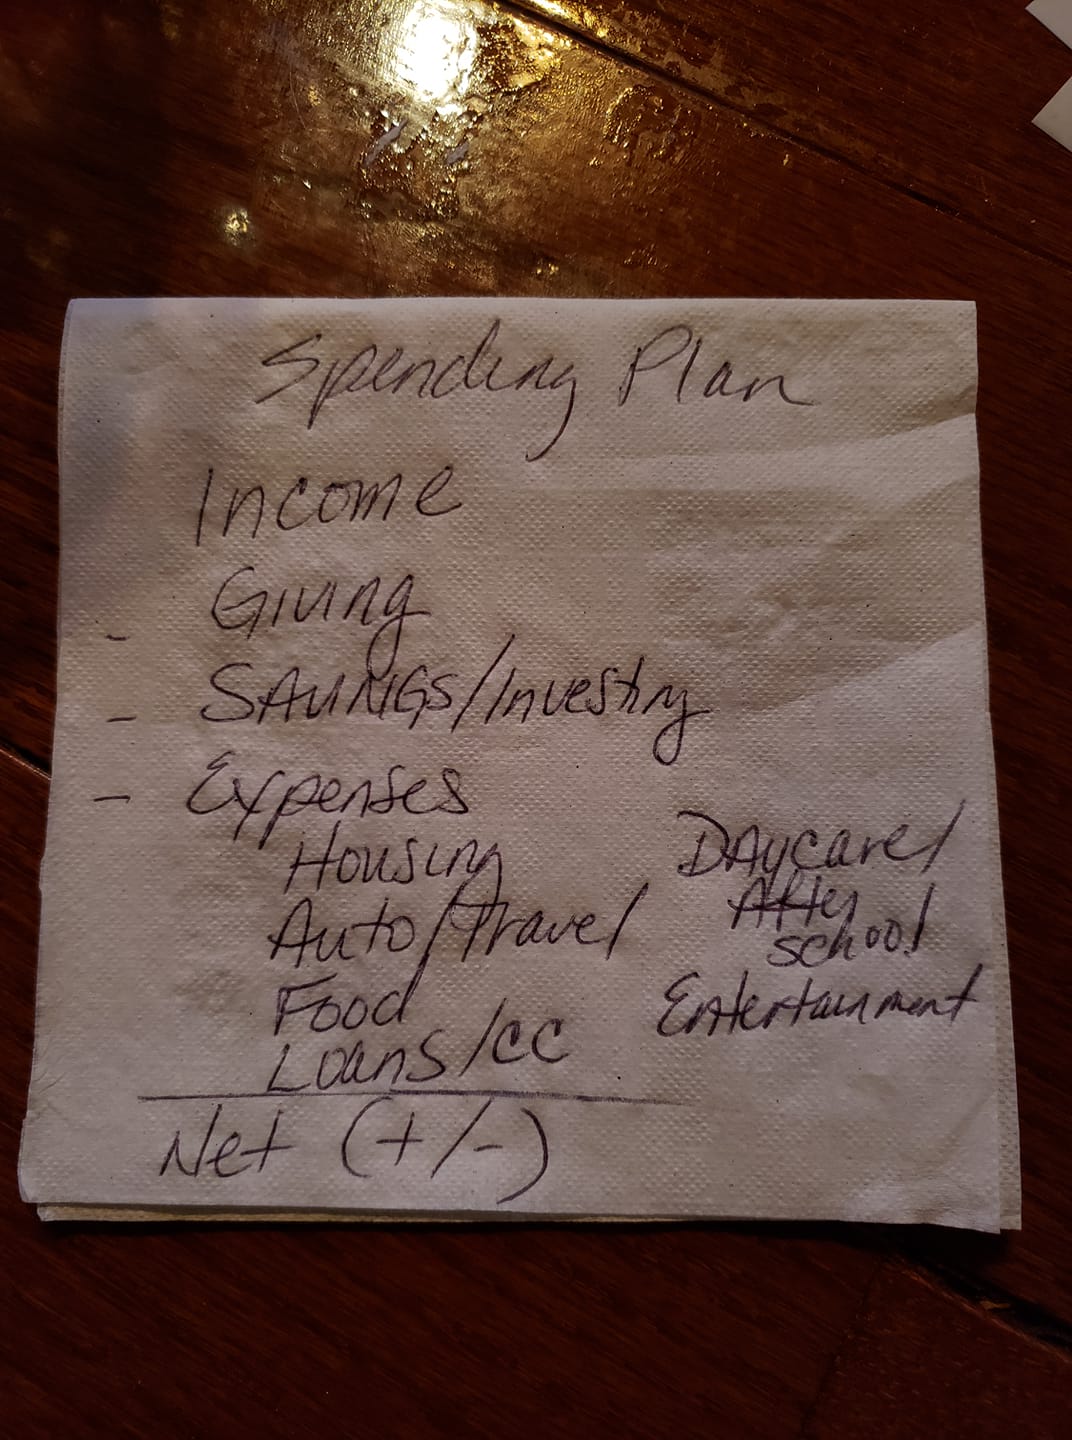 Spending Plan
Income
- Giving
- SAVINGS/Investing
- Expenses
Housing
Auto/Travel
Food
Loans/CC
DAycare/
After
school
Entertainment
Net (+/-)